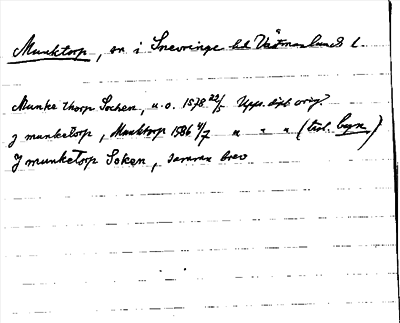 Munktorp, sn i Snevringe hd Västmanlands l.
Munke thorp Sochen, u.o. 1578 23/5 Upps. dipl. orig.
J munketorp, Munktorp 1586 4/7 " " " (trol. byn)
J munketorp Soken, samma brev